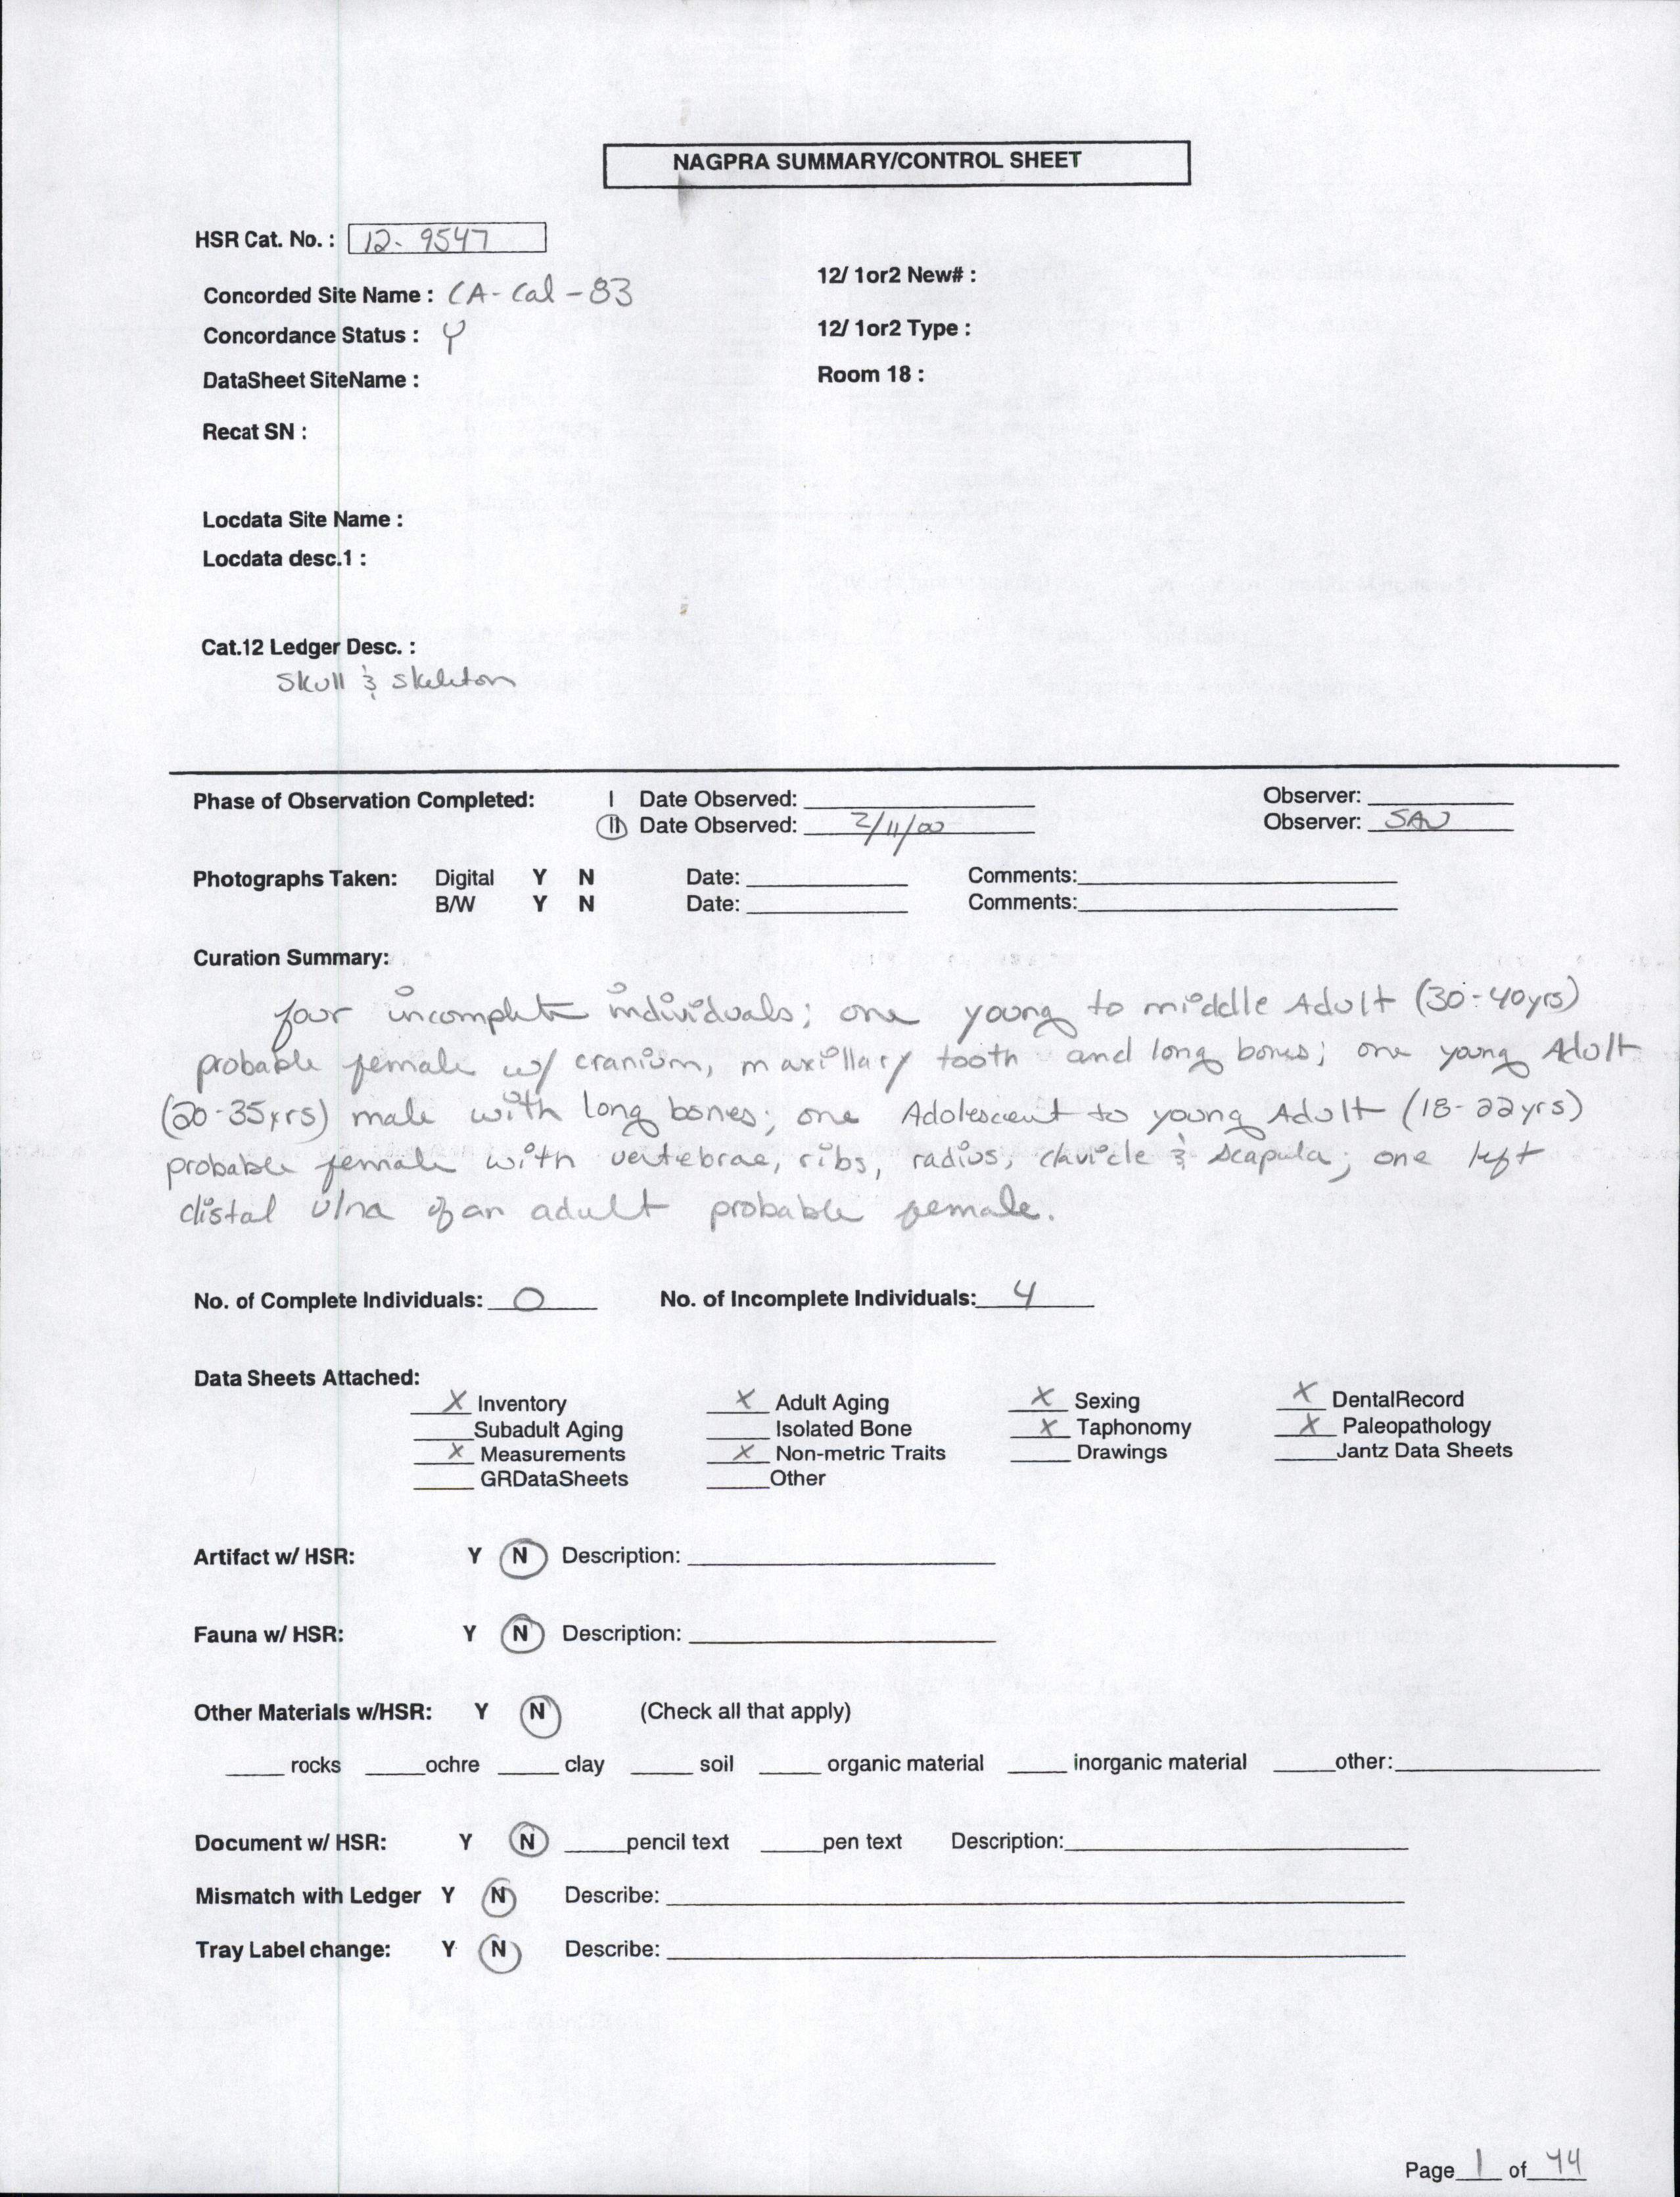 NAGPRA SUMMARY/CONTROL SHEET
HSR Cat. No. : 12- 9547
12/ 1or2 New# :
Concorded Site Name : CA-Cal-83
12/ 1or2 Type :
Concordance Status : Y
Room 18 :
DataSheet SiteName :
Recat SN :
Locdata Site Name :
Locdata desc.1 :
Cat.12 Ledger Desc. :
Skull & Skeleton
Phase of Observation Completed: I Date Observed: Observer:
II Date Observed: 2/11/00 Observer: SAW
Photographs Taken: Digital Y N Date: Comments:
B/W Y N Date: Comments:
Curation Summary:
four incomplete individuals; one young to middle Adult (30-40yrs)
probable female w/ cranium, maxillary tooth and long bones; one young Adult
(20-35yrs) male with long bones; one Adolescent to young Adult (18-22yrs)
probable female with vertebrae, ribs, radius, clavicle & scapula; one left
distal ulna of an adult probable female.
No. of Complete Individuals: 0 No. of Incomplete Individuals: 4
Data Sheets Attached:
X Inventory X Adult Aging X Sexing X DentalRecord
Subadult Aging Isolated Bone X Taphonomy X Paleopathology
X Measurements X Non-metric Traits Drawings Jantz Data Sheets
GRDataSheets Other
Artifact w/ HSR: Y N Description:
Fauna w/ HSR: Y N Description:
Other Materials w/HSR: Y N (Check all that apply)
rocks ochre clay soil organic material inorganic material other:
Document w/ HSR: Y N pencil text pen text Description:
Mismatch with Ledger Y N Describe:
Tray Label change: Y N Describe:
Page 1 of 44